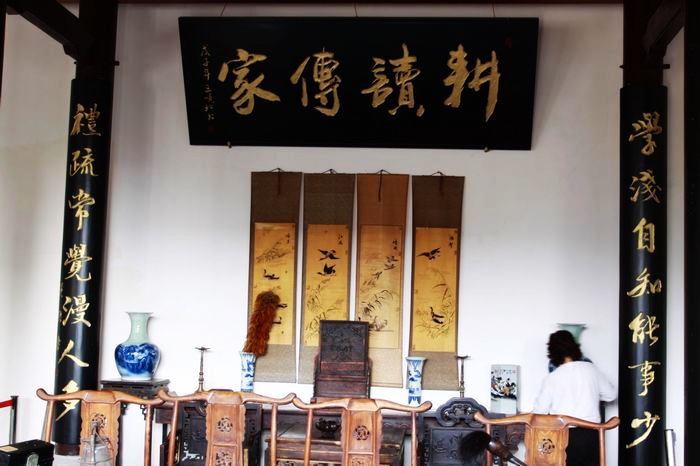 耕讀傳家
學淺自知能事少
禮疏常覺漫人多